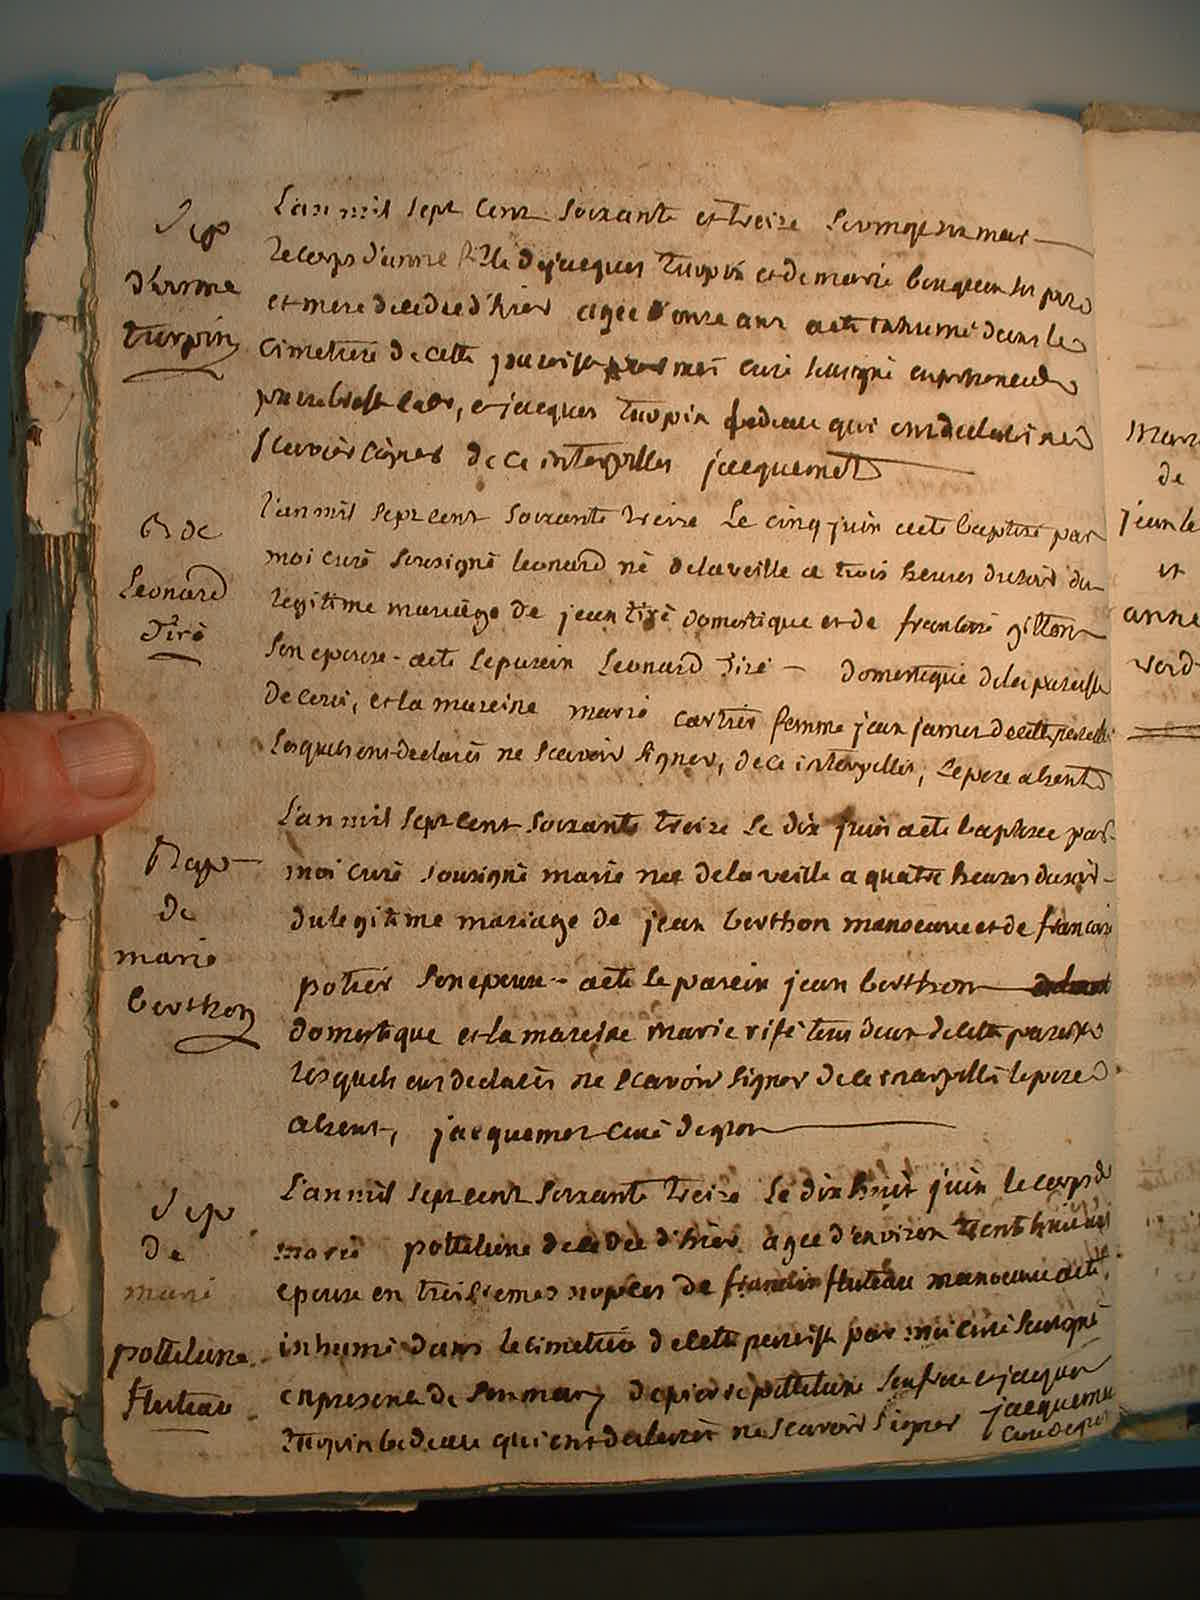 Sep
d'anne
turpin
L'an mil sept cent soixante et treize le vingt un mai
le corps d'anne fille de jacques turpin et de marie ses pere
et mere decedee d'hier agee d'onze ans a ete inhumé dans le
cimetiere de cette paroisse par moi curé sousigné en presence de
et jacques turpin bedeau qui ont declaré ne
scavoir signer de ce interpellés jacquemet
B de
Leonard
Tiré
l'an mil sept cent soixante treize le cinq juin a ete baptisé par
moi curé sousigné leonard né de la veille a trois heures du soir du
legitime mariage de jean tiré domestique et de francoise gillton
son epouse a ete le parein Leonard Tiré domestique de la paroisse
de et la mareine marie cartier femme jean jamet de cette paroisse
lesquels ont declarés ne scavoir signer, de ce interpellés, le pere absent
Bap
de
marie
berthon
L'an mil sept cent soixante treize le dix juin a ete baptisee par
moi curé sousigné marie nee de la veille a quatre heures du soir
du legitime mariage de jean berthon manoeuvre et de francoise
potier son epouse a ete le parein jean berthon
domestique et la mareine marie rifé tous deux de cette paroisse
lesquels ont declarés ne scavoir signer de ce interpellés le pere
absent, jacquemet curé de
Sep
de
marie
pottelune
fluteau
L'an mil sept cent soixante treize le dix huit juin le corps de
marie pottelune decedee d'hier agee d'environ trente huit ans
epouse en troisiemes nopces de fluteau manoeuvre a ete
inhumé dans le cimetiere de cette paroisse par moi curé sousigné
en presence de son mary de pierre pottelune son frere et jacques
turpin bedeau qui ont declarés ne scavoir signer jacquemet
curé de
mari
de
jean le
et
anne
verd